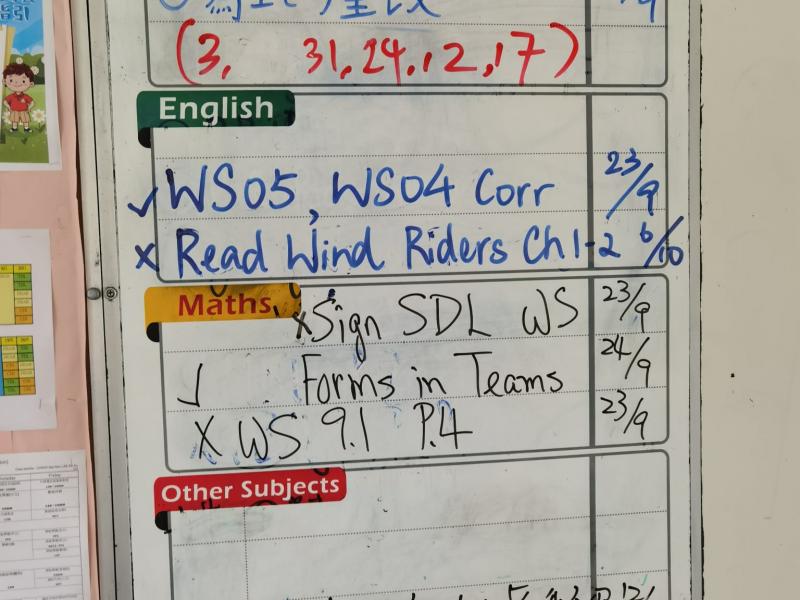 (3, 31, 24, 12, 17)
English
✓ WS05, WS04 Corr 23/9
x Read Wind Riders Ch 1-2 6/10
Maths
x Sign SDL WS 23/9
✓ Forms in Teams 24/9
X WS 9.1 P.4 23/9
Other Subjects